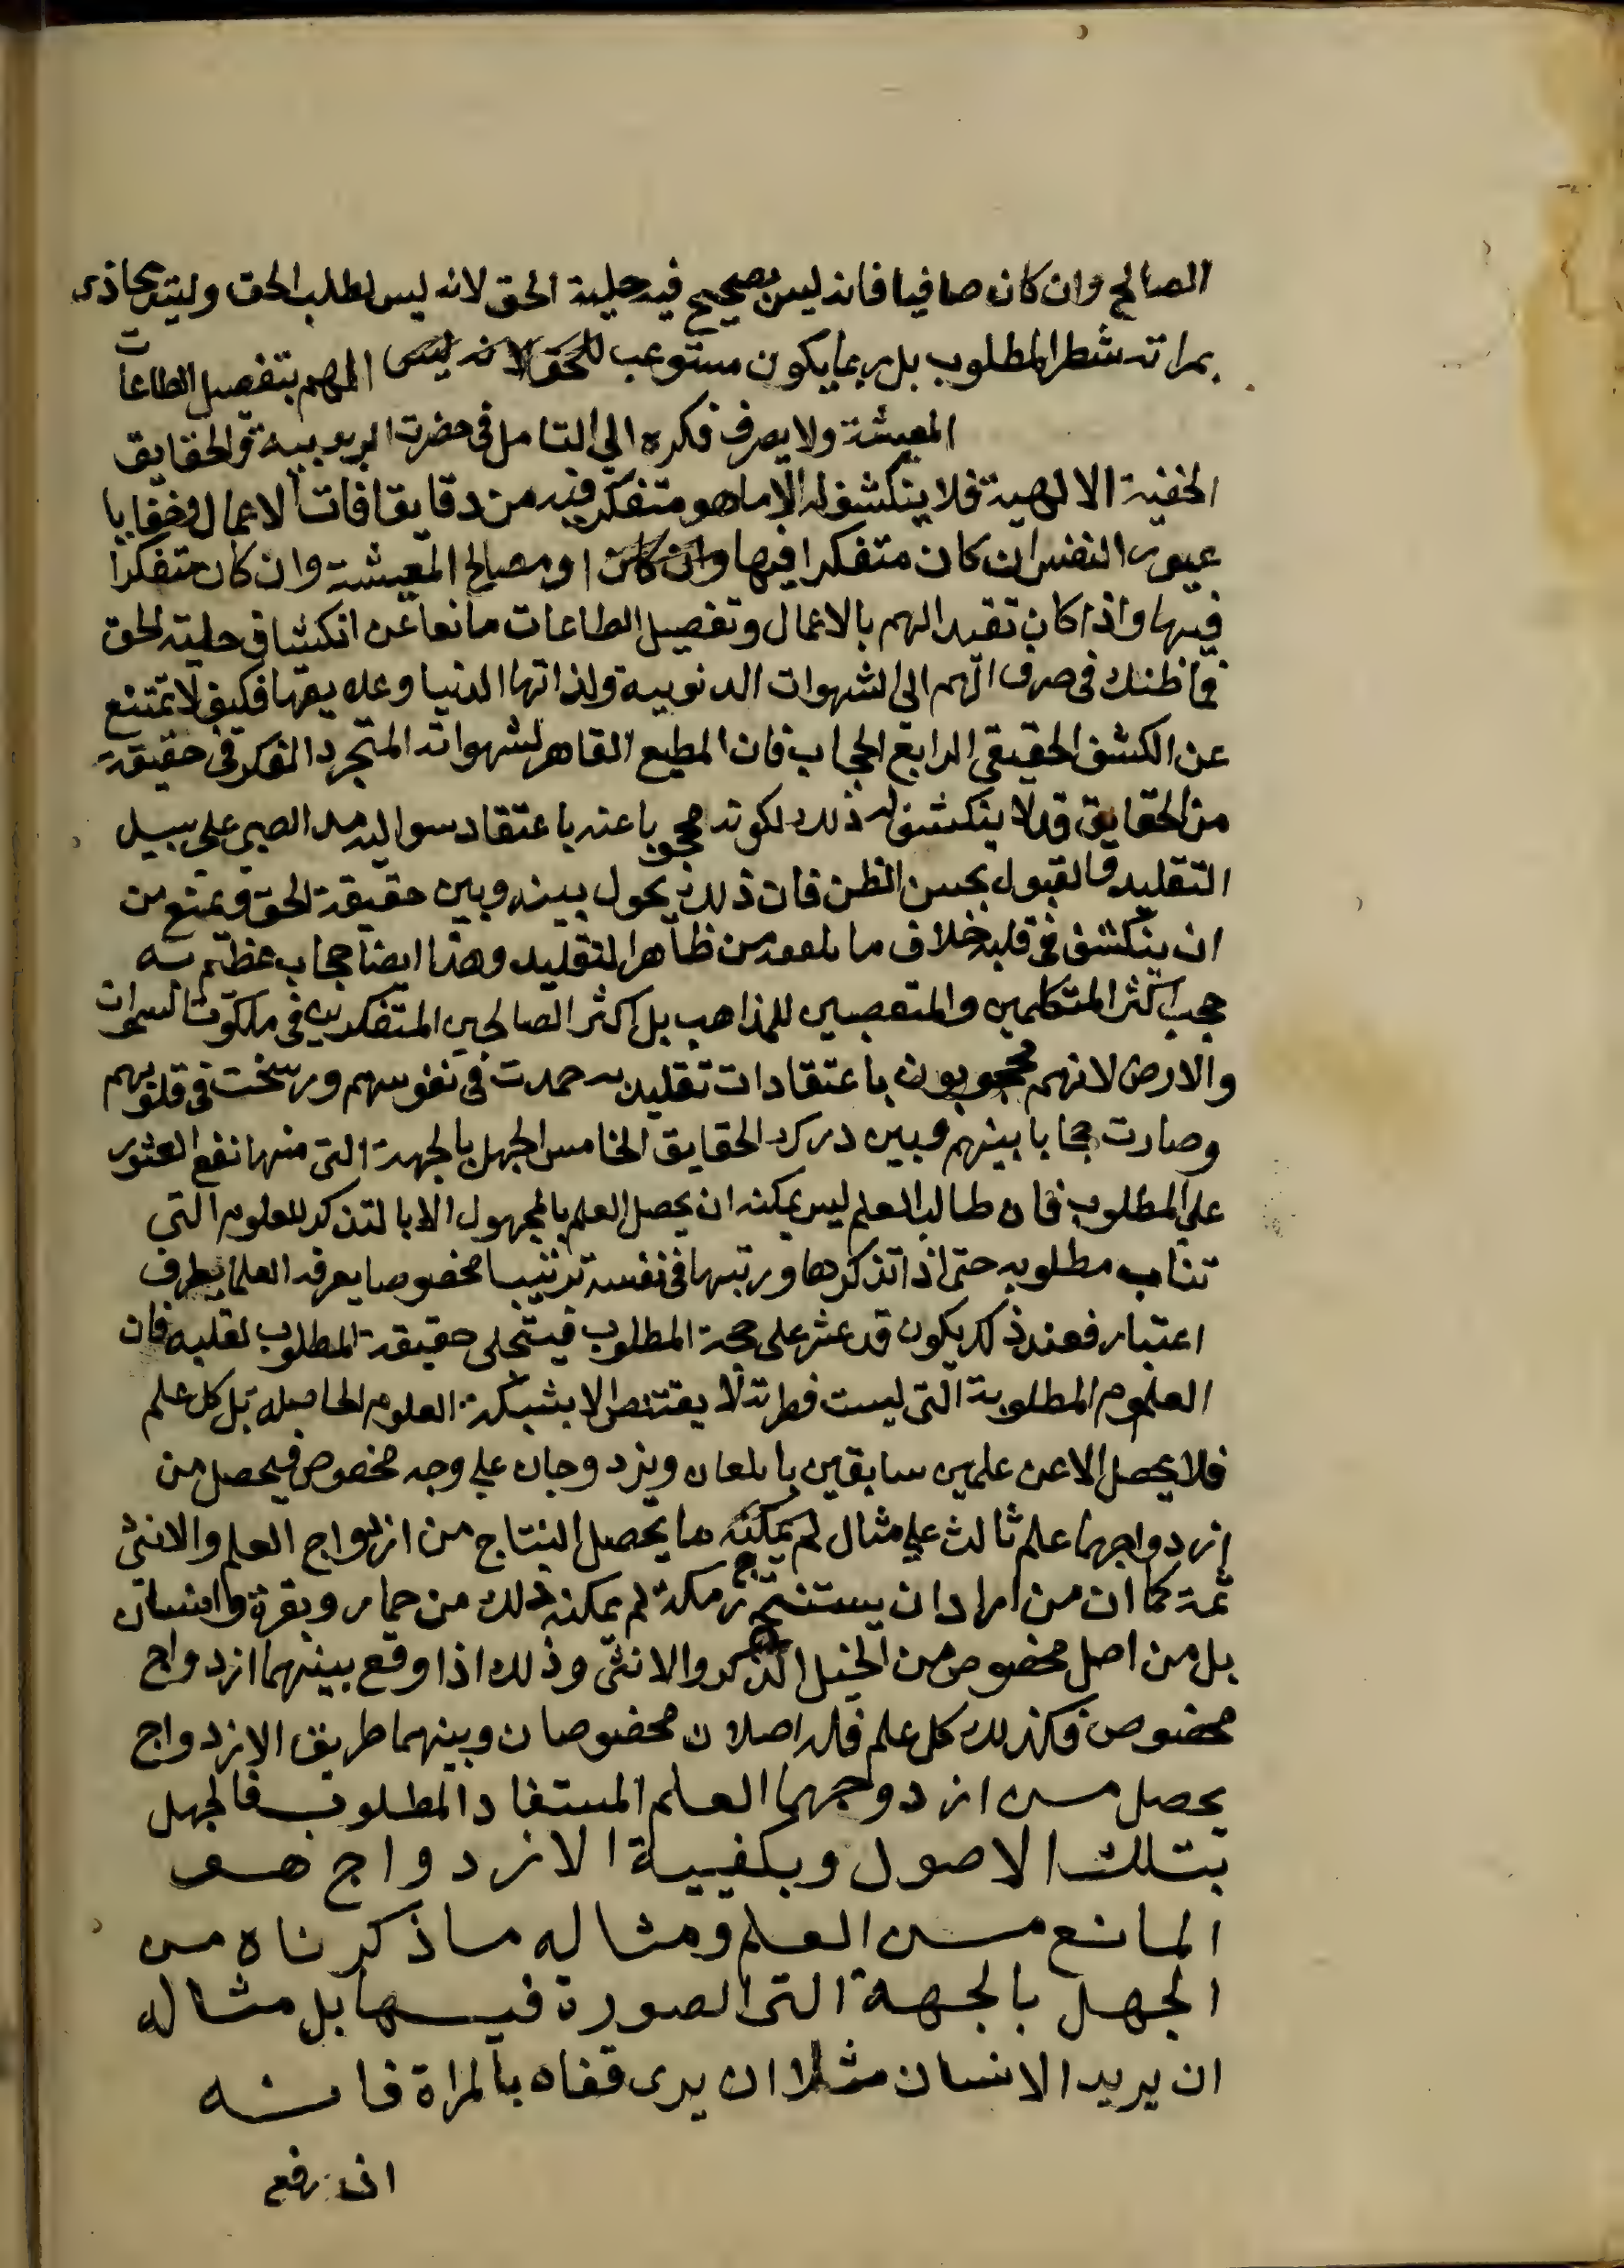 الصالح وان كان صافيا فانه ليس بصحيح فيه حلية الحق لانه ليس لطلب الحق وليته يحاذى
بمراته شطر المطلوب بل ربما يكون مستوعب للحق لانه ليس المهم بتفصيل الطاعات
المعيشة ولا يصرف فكره الي التامل فى حضرت الربوبية والحقايق
الخفية الالهية فلا ينكشف له الا ما هو متفكر فيه من دقايق افات الاعمال وخفايا
عيوب النفس ان كان متفكرا فيها وان كان او مصالح المعيشة وان كان متفكرا
فيها واذا كان تقيد الهم بالاعمال وتفصيل الطاعات مانعا عن انكشاف حلية الحق
فما ظنك فى صرف الهم الى الشهوات الدنوبية ولذاتها الدنيا وعلايقها فكيف لا تمتنع
عن الكشف الحقيقي الرابع الحجاب فان المطيع القاهر لشهواته المتجرد الفكر فى حقيقة
من الحقايق قد لا ينكشف له ذلك لكونه محجوبا عنه باعتقاد سو اليه مد الصبى على سبيل
التقليد والقبول بحسن الظن فان ذلك يحول بينه وبين حقيقة الحق ويمنع من
ان ينكشف فى قلبه خلاف ما تلقفه من ظاهر التقليد وهذا ايضا حجاب عظيم به
حجب اكثر المتكلمين والمتعصبين للمذاهب بل اكثر الصالحين المتفكرين فى ملكوت السموات
والارض لانهم محجوبون باعتقادات تقليديه جمدت فى نفوسهم ورسخت فى قلوبهم
وصارت حجابا بينهم وبين درك الحقايق الخامس الجهل بالجهة التى منها نفع العثور
على المطلوب فان طالب العلم ليس يمكنه ان يحصل العلم بالمجهول الا بالتذكر للعلوم التي
تناسب مطلوبه حتى اذا تذكرها ورتبها فى نفسه ترتيبا مخصوصا يعرفه العلما بطرف
اعتبار فعند ذلك يكون قد عثر على جهة المطلوب فيتجلى حقيقة المطلوب لقلبه فان
العلوم المطلوبة التى ليست فطرته لا يقتنص الا بشبكة العلوم الحاصله بل كل علم
فلا يحصل الا عن علمين سابقين ياتلفان ويزدوجان علي وجه مخصوص فيحصل من
ازدواجهما علم ثالث علي مثال لم يمكنه ما يحصل النتاج من ازدواج العلم والانثى
ثمة كما ان من اراد ان يستنتج رمكة لم يمكنه ذلك من حمار وبقرة وانسان
بل من اصل مخصوص من الخيل الذكر والانثى وذلك اذا وقع بينهما ازدواج
مخصوص فكذلك كل علم فله اصلان مخصوصان وبينهما طريق الازدواج
يحصل من ازدوجهما العلم المستفاد المطلوب فالجهل
بتلك الاصول وبكفيية الازدواج هو
المانع من العلم ومثاله ما ذكرناه من
الجهل بالجهة التى الصورة فيها بل مثاله
ان يريد الانسان مثلا ان يرى قفاه بالمراة فانه
ان رفع